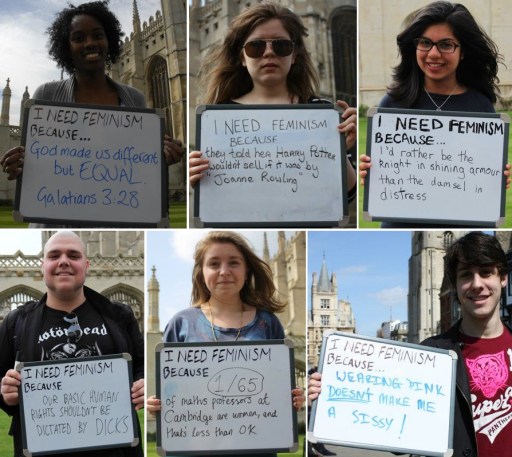 I NEED FEMINISM
BECAUSE...
God made us different
but EQUAL
Galatians 3:28
I NEED FEMINISM
BECAUSE
they told her Harry Potter
wouldn't sell if it was by
"Joanne Rowling"
I NEED FEMINISM
BECAUSE...
I'd rather be the
Knight in shining armour
than the damsel in
distress
I NEED FEMINISM
BECAUSE
OUR BASIC HUMAN
RIGHTS SHOULDN'T BE
DICTATED BY DICKS
Motörhead
I NEED FEMINISM
BECAUSE
1/65
of maths professors at
Cambridge are women, and
that's less than OK
I NEED FEMINISM
BECAUSE...
WEARING PINK
DOESN'T MAKE ME
A SISSY!
Super